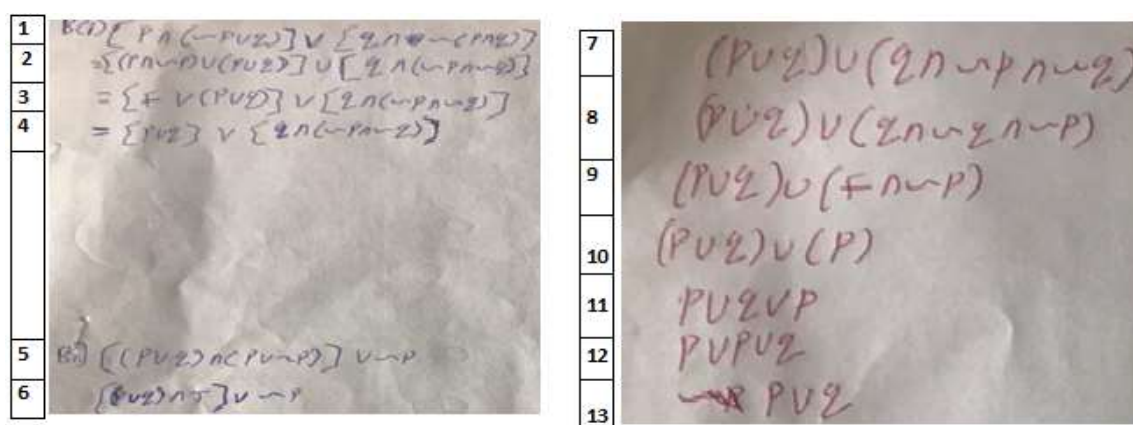 1 B(i) [P ∩ (~P∪q)] ∨ [q ∩ ~(P∩q)]
2 = [(P∩~P)∪(P∪q)] ∪ [q ∩ (~P∩~q)]
3 = [F ∨ (P∪q)] ∨ [q∩(~P∩~q)]
4 = [P∪q] ∨ [q∩(~P∩~q)]
5 [(P∪q)∩(P∪~P)] ∪~P
6 [(P∪q)∩T]∪ ~P
7 (P∪q)∪(q∩~P∩~q)
8 (P∪q)∪(q∩~q∩~P)
9 (P∪q)∪(F∩~P)
10 (P∪q)∪(P)
11 P∪q∪P
12 P∪P∪q
13 P∪q